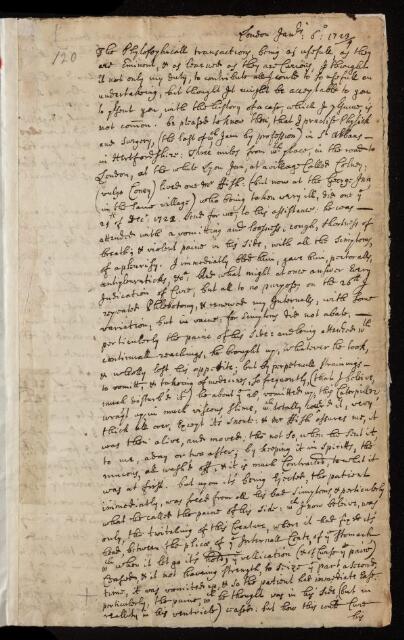 London Jan: 6: 172
120
The Phylosophicall transactions, being as usefull as they
are Eminent, & as learned as they are Curious, I thought
it not only my duty, to contribute to so usefull an
undertaking, but thought it might be acceptable to you
to present you with the history of a case, which I presume is
not common. be pleased to know then, that I practise Physick
and Surgery, (the last of wch I am by profession) in St Albans
in Hertfordshire. Three miles from wch place, in the road to
London, at the white Lyon Inn, at a village Called Colney,
(vulgo Coney) lived one Mr Fish: (but now at the George Inn
in the same village) who being taken very ill, did on ye
25th of Decr 1722. send for me, to his assistance. he was
attended with a vomitting and loosness, cough, shortness of
breath, & violent paine in his side, with all the Simptoms,
of a pleurisy. I immediatly bled him, gave him, pectoralls,
antipleuriticks, &c. and what might at once answer Every
Indication of Cure, but all to no purpose, on the 26th I
repeated Phlebotomy, & renewed my Internals, with some
variation, but in vaine, for simptoms did not abate,
particularly the paine of his side: and being attended with
continuall reachings, he brought up, whatever he took,
& wholly lost his appetite; but by perpetuall strainings
to vomitt, & takeing of medicines, so frequently, (that I believe,
much disturb'd it) he about ye 28, vomitted up, this Caterpiler
wrapt up in much viscous slime, wch totally cover'd it, very
thick all over, Except its snout: & Mr Fish assures me, it
was then alive, and moved. tho not so, when he sent it
to me, a day or two after; by keeping it in spirits, the
mucous, all washt off, & it is much Contracted, to what it
was at first. but upon its being Ejected, the patient
immediatly, was freed from all his bad simptoms, & particularly
what he called the paine of his side: wch I now believe, was
only, the twitching of this Creature, where it had fix'd its
head, between the plice, of ye Internall Coats, of ye Stomach
wch when it let go its hold, ye vellication (& of Consq ye paine)
Ceased; & it not having strength to seize ye part a second
time, it was vomitted up, & so the patient had immediate ease,
particularly, the paine, wch he thought was in his side (but in
reality in his ventricle) ceased: but how this Cure
his